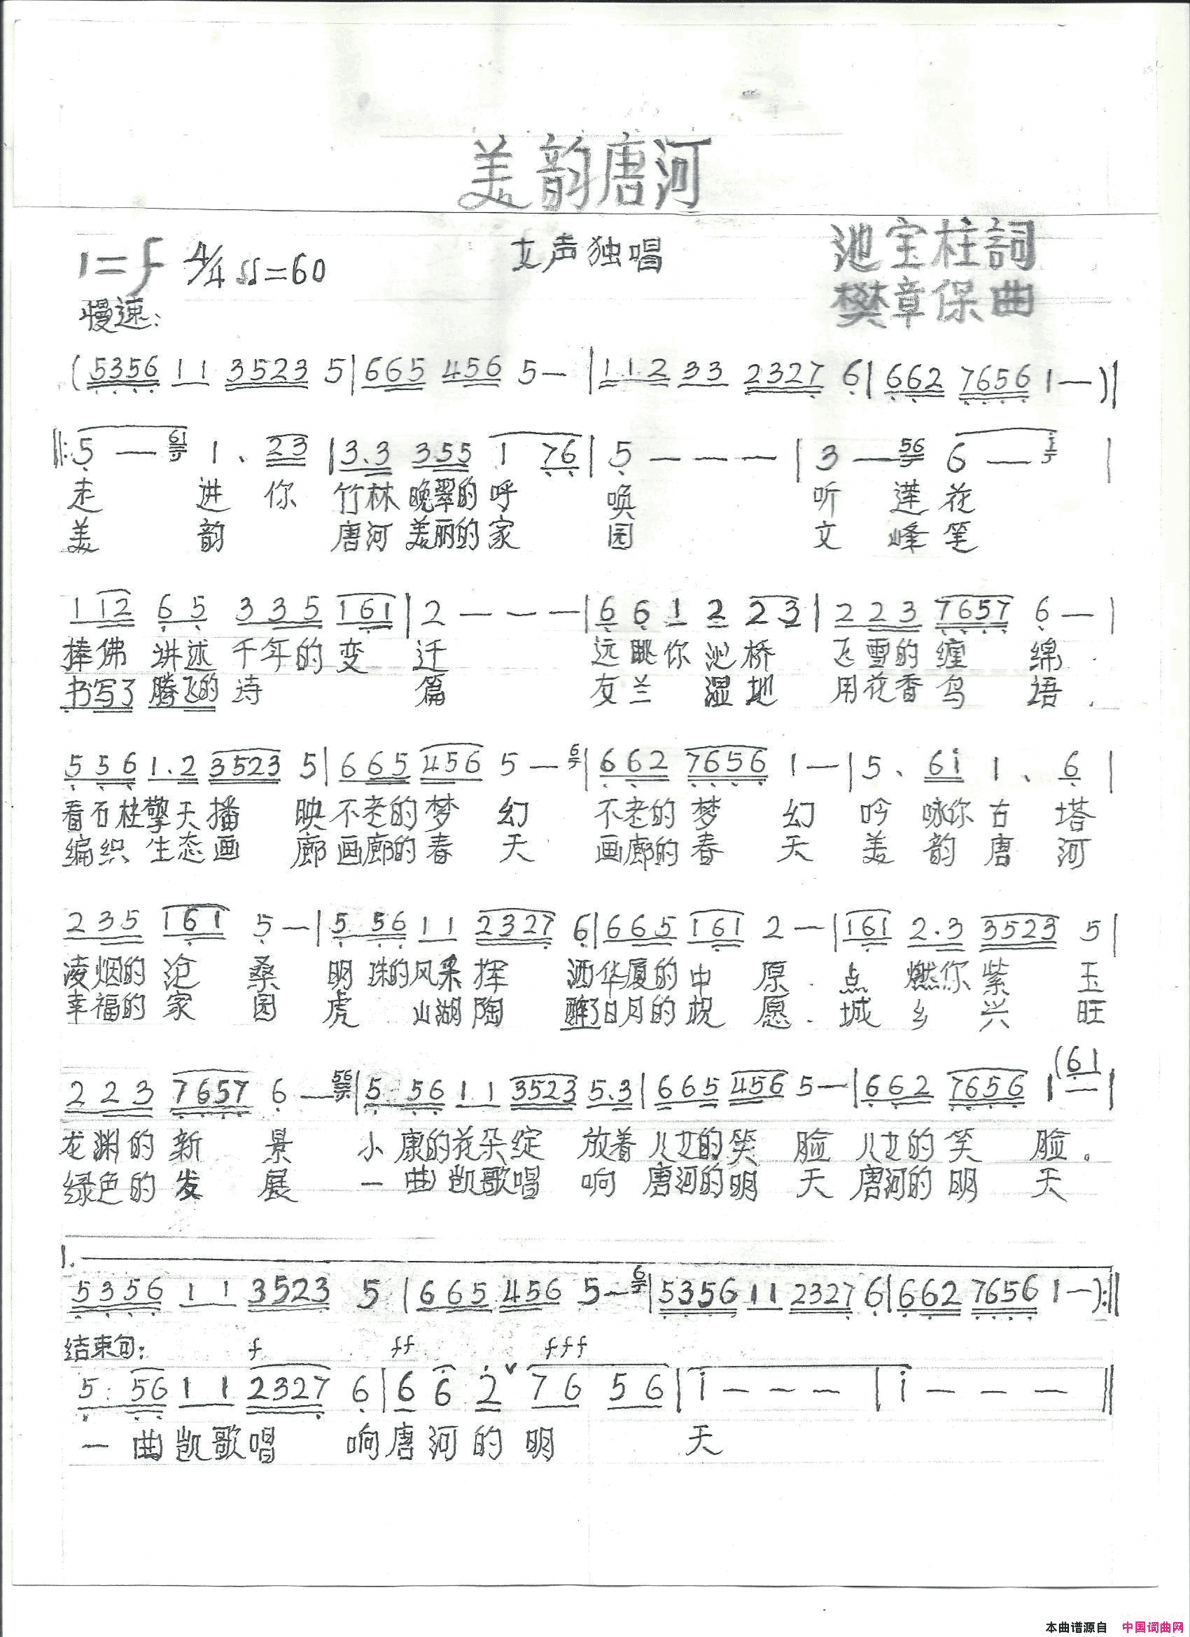 美韵唐河
1=F 4/4 ♩=60 女声独唱 池宝柱詞
樊章保曲
慢速:
(5356 11 3523 5|665 456 5—|112 33 2327 6|662 7656 1—)|
‖:5—61 1. 23|3.3 355 1 76|5———|3—56 6—1|
走 进 你 竹林 晚翠的 呼 唤 听 莲 花
美 韵 唐河 美丽的 家 园 文 峰 笔
112 65 335 161|2———|66 1 2 23|223 7657 6—|
捧佛 讲述 千年的 变 迁 远眺你 沁桥 飞雪的 缠 绵.
书写了 腾飞的 诗 篇 友兰 湿地 用花香 鸟 语.
556 1.2 3523 5|665 456 5—6|662 7656 1—|5. 61 1. 6|
看石柱擎天播 映不老的梦 幻 不老的梦 幻 吟 咏你古 塔
编织 生态画 廊画廊的春 天 画廊的春 天 美 韵 唐 河
235 161 5—|5 56 11 2327 6|665 161 2—|161 2.3 3523 5|
凌烟的 沧 桑 明 珠的风采 挥 洒华厦的中 原. 点 燃你 紫 玉
幸福的 家 园 虎 山湖 陶 醉了日月的祝 愿. 城 乡 兴 旺
223 7657 6—56|5. 56 11 3523 5.3|665 456 5—|662 7656 1—(61|
龙渊的 新 景 小 康的花朵绽 放着 儿女的笑 脸 儿女的 笑 脸。
绿色的 发 展 一 曲凯歌唱 响 唐河的明 天 唐河的 明 天
1.
5356 11 3523 5|665 456 5—6|5356 11 2327 6|662 7656 1—):‖
结束句: f ff fff
5. 56 11 2327 6|6 6 2 ∨ 76 56|1———|1———‖
一 曲凯歌唱 响唐河的明 天
本曲谱源自 中国词曲网